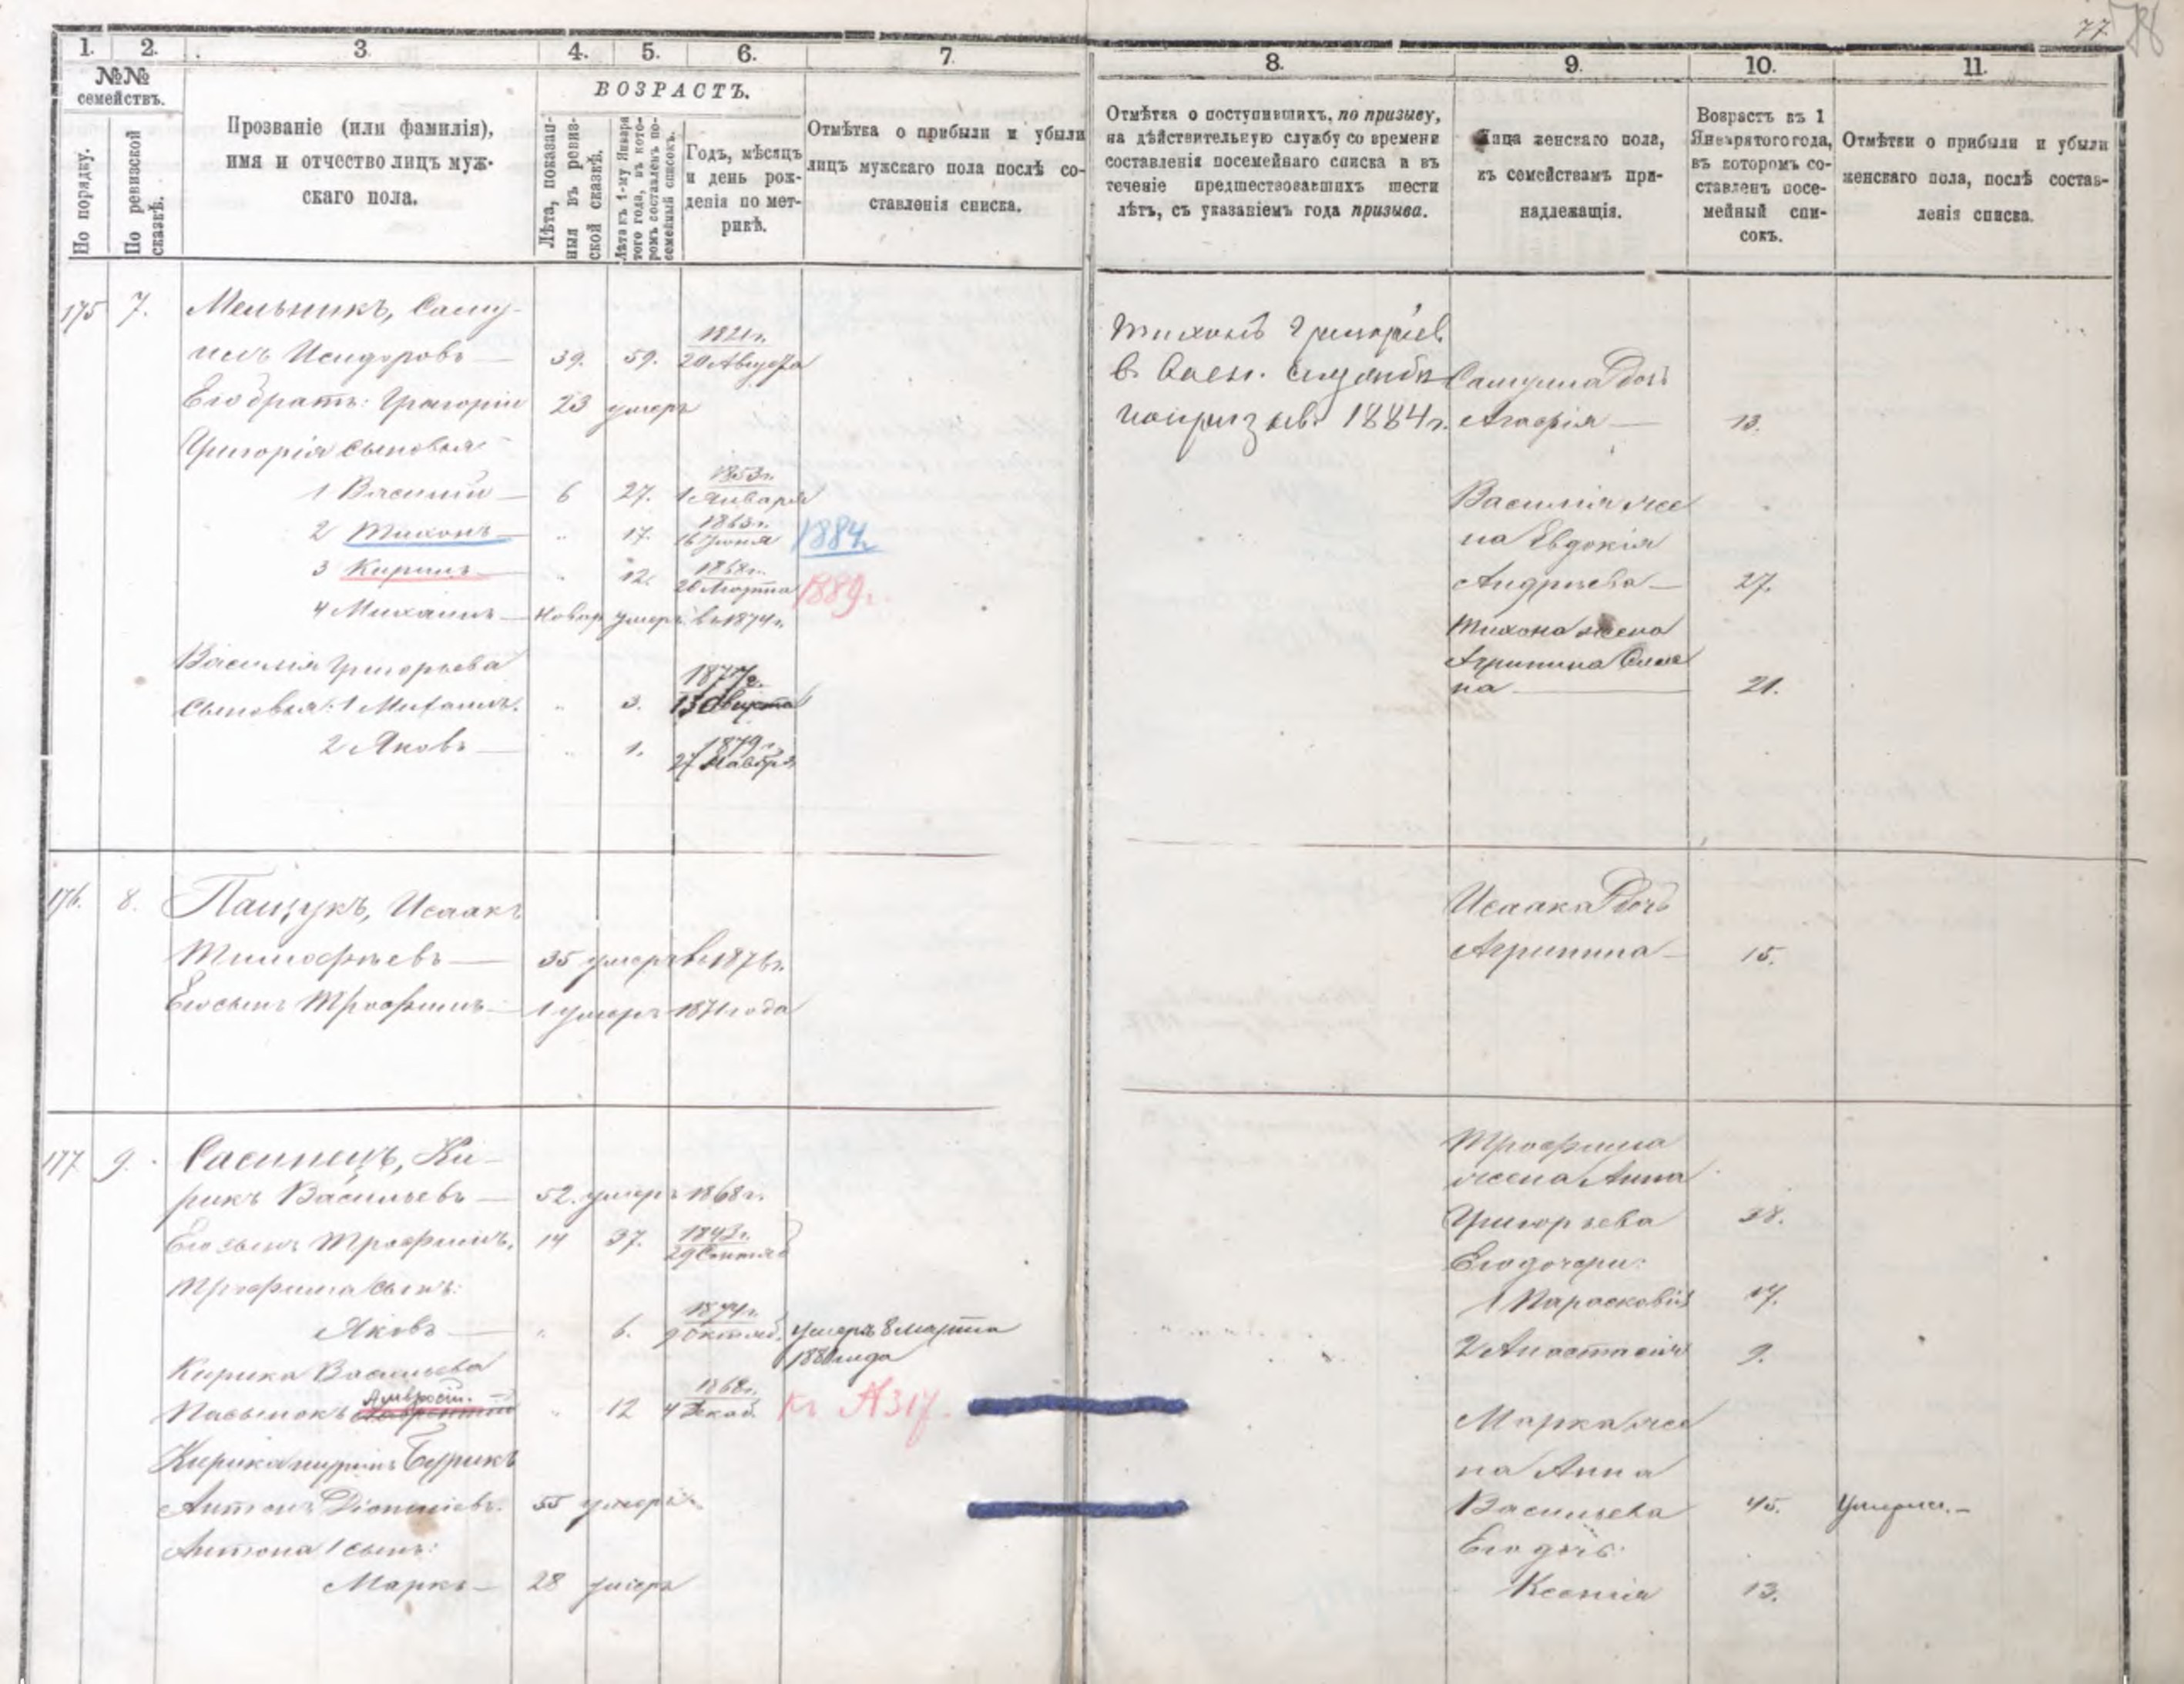 77.
1. 2. 3. 4. 5. 6. 7.
№№
семействъ.
По порядку.
По ревизской
сказкѣ.
Прозваніе (или фамилія),
имя и отчество лицъ муж-
скаго пола.
ВОЗРАСТЪ.
Лѣта, показан-
ныя въ ревиз-
ской сказкѣ.
Лѣта къ 1-му Января
того года, въ кото-
ромъ составленъ по-
семейный списокъ.
Годъ, мѣсяцъ
и день рож-
денія по мет-
рикѣ.
Отмѣтка о прибыли и убыли
лицъ мужскаго пола послѣ со-
ставленія списка.
175 7. Мельникъ, Саму-
илъ Исидоровъ 39. 59. 1821 г. 20 Августа
Его братъ: Григорій 23 умеръ
Григорія сыновья
1 Василій 6 27. 1853 г. 1 Января
2 Тихонъ " 17. 1863 г. 16 Іюня 1884
3 Кирилъ " 12. 1868 г. 20 Марта 1889 г.
4 Михаилъ новор умеръ въ 1874 г.
Василія Григорьева 1877 г.
сыновья: 1 Михаилъ. " 3. 13
2 Яковъ " 1. 1879 г. 27
176. 8. Пащукъ, Исаакъ
Тимофѣевъ 35 умеръ въ 1876 г.
Его сынъ Трофимъ 1 умеръ 1871 года
177 9. Сасинецъ, Ки-
рикъ Васильевъ 52. умеръ 1868 г.
Его сынъ Трофимъ. 14 37. 1842 г. 29 Сентяб
Трофима сынъ:
Яковъ " 6. 1874 г. 9 Октяб. умеръ 8 марта
1880 года
Кирика Васильева
Амвросій.
Пасынокъ " 12 1868 г. 4 Декаб. къ №317.
Кирика
Антонъ Діонисіевъ. 55 умеръ.
Антона 1 сынъ:
Маркъ 28 умеръ
8. 9. 10. 11.
Отмѣтка о поступившихъ, по призыву,
на дѣйствительную службу со времени
составленія посемейнаго списка и въ
теченіе предшествовавшихъ шести
лѣтъ, съ указаніемъ года призыва.
Лица женскаго пола,
къ семействамъ при-
надлежащія.
Возрастъ въ 1
Января того года,
въ которомъ со-
ставленъ посе-
мейный спи-
сокъ.
Отмѣтки о прибыли и убыли
женскаго пола, послѣ состав-
ленія списка.
Тихонъ Григорьев
в Воен. службѣ
1884 г.
Самуила дочь
Агафія 13.
Василія же
на Евдокія
Андреева 27.
Тихона жена
Агрипина
на 21.
Исаака дочь
Агрипина 15.
Трофима
жена Анна
Григорьева 38.
Его дочери:
1 Парасковія 17.
2 Анастасія 9.
Марка же
на Анна
Васильева 45. Умерла.
Его дочь:
Ксенія 13.